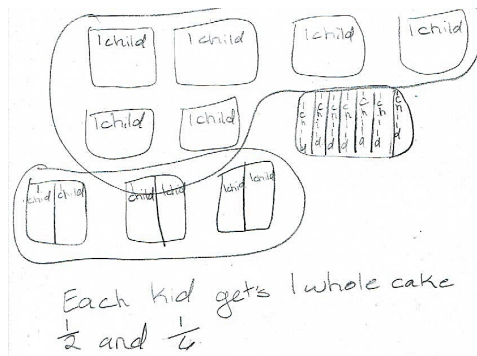 1 child 1 child 1 child 1 child
1 child 1 child
child child child child child child child
1 child child child 1 child 1 child 1 child
Each kid gets 1 whole cake
1/2 and 1/6